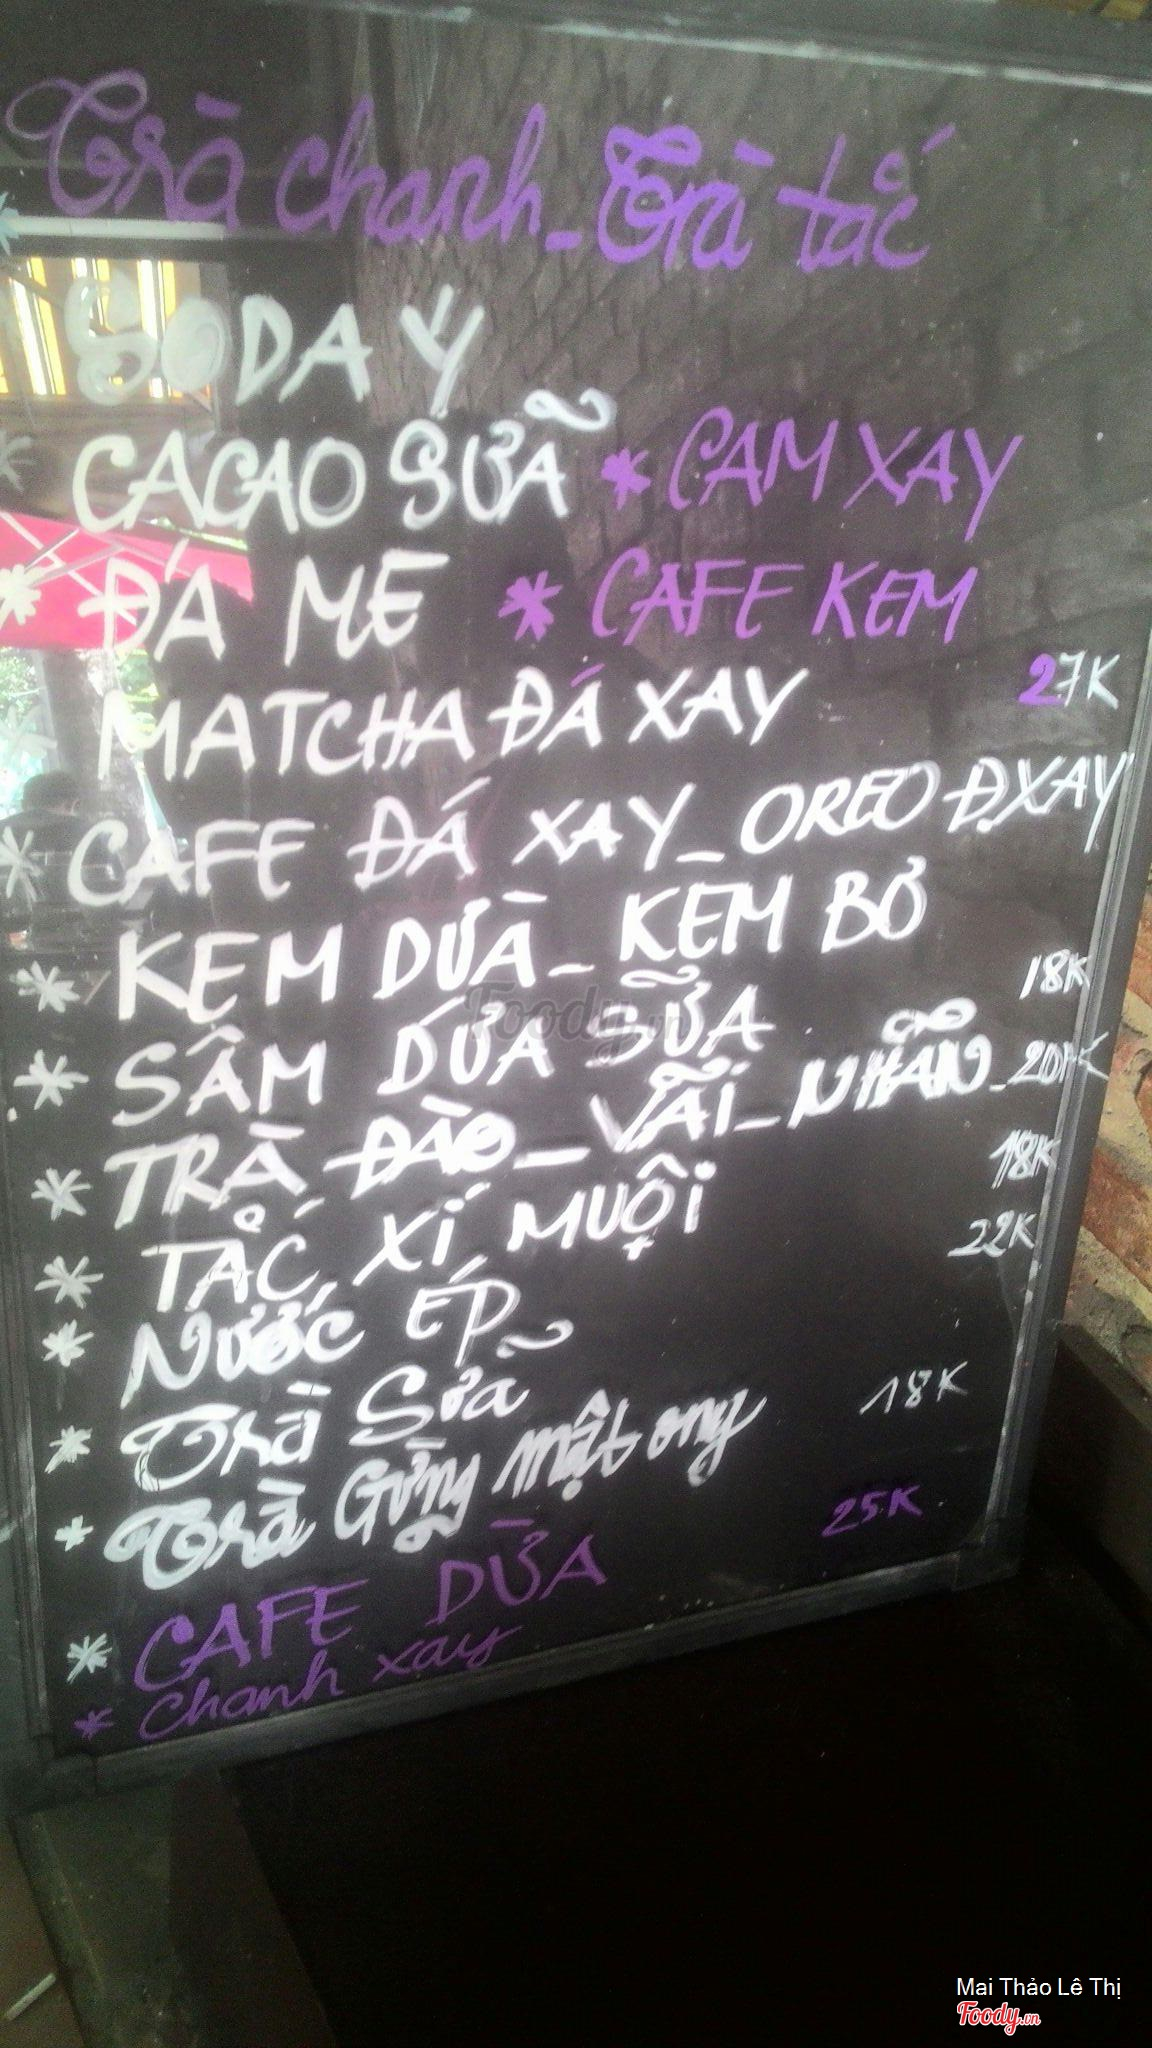 Trà chanh_Trà tắc
SODA Ý
CACAO SỮA * CAM XAY
* ĐÁ ME * CAFE KEM
MATCHA ĐÁ XAY 27K
* CAFE ĐÁ XAY_OREO Đ.XAY
* KEM DỪA_KEM BƠ
* SÂM DỨA SỮA 18K
* TRÀ ĐÀO_VẢI_NHÃN_20K
* TẮC XÍ MUỘI 18K
* NƯỚC ÉP 22K
* Trà Sữa
* Trà Gừng mật ong 18K
* CAFE DỪA 25K
* chanh xay
Foody.vn
Mai Thảo Lê Thị
Foody.vn